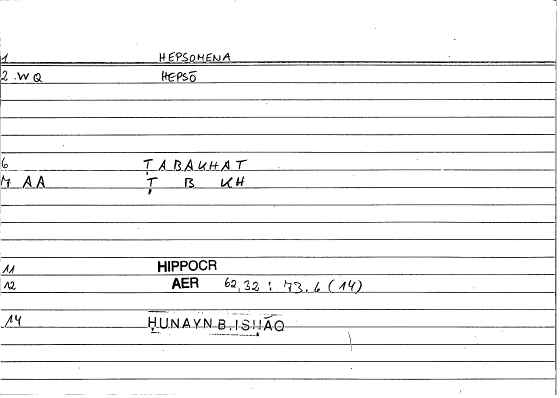 1 HEPSOMENA
2.WQ HEPSŌ
6 ṬABAKHAT
7 AA Ṭ B KH
11 HIPPOCR
12 AER 62,32 : 73.6 (14)
14 ḤUNAYN B. ISḤĀQ